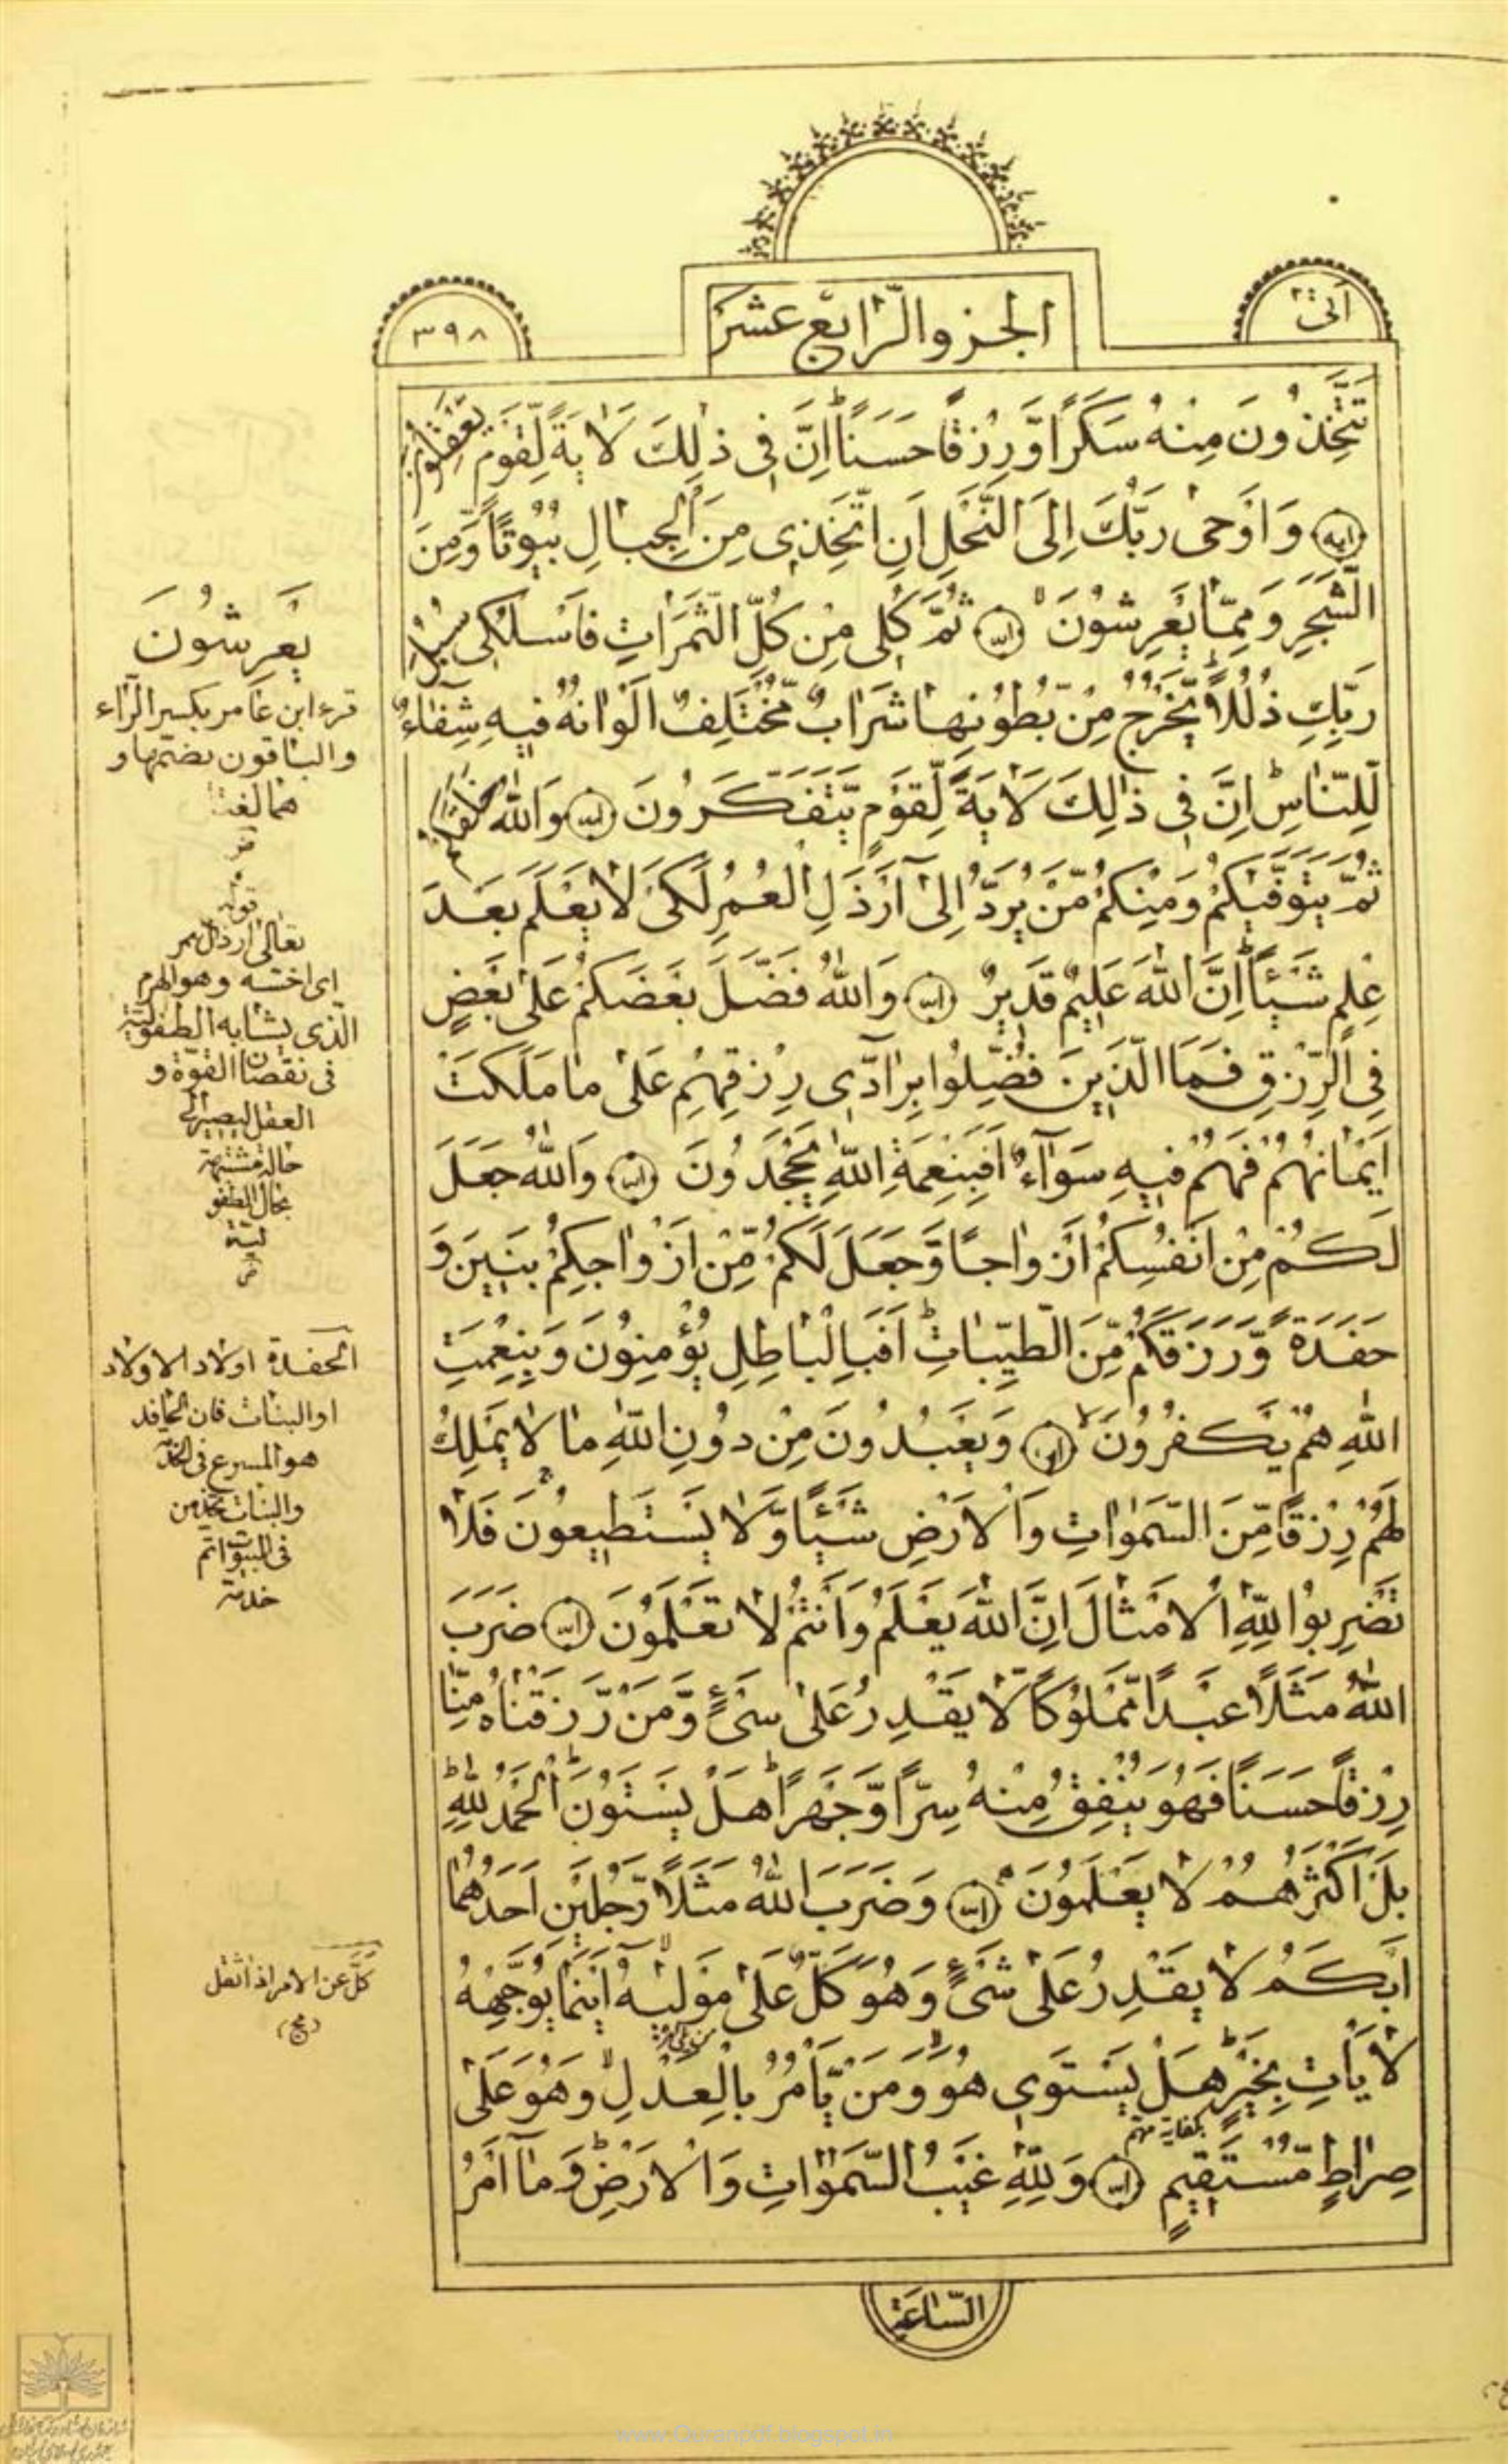 الجزو الرّابع عشر
٣٩٨
تَتَّخِذُونَ مِنْهُ سَكَرًا وَّرِزْقًا حَسَنًا ؕ اِنَّ فِی ذٰلِكَ لَاٰیَةً لِّقَوْمٍ یَّعْقِلُونَ
ایه وَ اَوْحٰی رَبُّكَ اِلَی النَّحْلِ اَنِ اتَّخِذِی مِنَ الْجِبَالِ بُیُوتًا وَّمِنَ
الشَّجَرِ وَمِمَّا یَعْرِشُونَ ۙ ایه ثُمَّ كُلِی مِنْ كُلِّ الثَّمَرَاتِ فَاسْلُكِی سُبُلَ
رَبِّكِ ذُلُلًا ؕ یَّخْرُجُ مِنْ بُطُونِهَا شَرَابٌ مُّخْتَلِفٌ اَلْوَانُهُ فِیهِ شِفَآءٌ
لِّلنَّاسِ ؕ اِنَّ فِی ذٰلِكَ لَاٰیَةً لِّقَوْمٍ یَّتَفَكَّرُونَ ایه وَاللّٰهُ خَلَقَكُمْ
ثُمَّ یَتَوَفّٰیكُمْ وَمِنْكُمْ مَّنْ یُرَدُّ اِلٰٓی اَرْذَلِ الْعُمُرِ لِكَیْ لَا یَعْلَمَ بَعْدَ
عِلْمٍ شَیْئًا ؕ اِنَّ اللّٰهَ عَلِیْمٌ قَدِیْرٌ ایه وَاللّٰهُ فَضَّلَ بَعْضَكُمْ عَلٰی بَعْضٍ
فِی الرِّزْقِ فَمَا الَّذِینَ فُضِّلُوا بِرَآدِّی رِزْقِهِمْ عَلٰی مَا مَلَكَتْ
اَیْمَانُهُمْ فَهُمْ فِیهِ سَوَآءٌ اَفَبِنِعْمَةِ اللّٰهِ یَجْحَدُونَ ایه وَاللّٰهُ جَعَلَ
لَكُمْ مِنْ اَنْفُسِكُمْ اَزْوَاجًا وَّجَعَلَ لَكُمْ مِّنْ اَزْوَاجِكُمْ بَنِینَ وَ
حَفَدَةً وَّرَزَقَكُمْ مِّنَ الطَّیِّبَاتِ ؕ اَفَبِالْبَاطِلِ یُؤْمِنُونَ وَبِنِعْمَتِ
اللّٰهِ هُمْ یَكْفُرُونَ ۙ ایه وَیَعْبُدُونَ مِنْ دُونِ اللّٰهِ مَا لَا یَمْلِكُ
لَهُمْ رِزْقًا مِّنَ السَّمٰوَاتِ وَالْاَرْضِ شَیْئًا وَّلَا یَسْتَطِیعُونَ فَلَا
تَضْرِبُوا لِلّٰهِ الْاَمْثَالَ اِنَّ اللّٰهَ یَعْلَمُ وَاَنْتُمْ لَا تَعْلَمُونَ ایه ضَرَبَ
اللّٰهُ مَثَلًا عَبْدًا مَّمْلُوكًا لَّا یَقْدِرُ عَلٰی شَیْءٍ وَّمَنْ رَّزَقْنَاهُ مِنَّا
رِزْقًا حَسَنًا فَهُوَ یُنْفِقُ مِنْهُ سِرًّا وَّجَهْرًا ؕ هَلْ یَسْتَوُونَ ؕ اَلْحَمْدُ لِلّٰهِ ؕ
بَلْ اَكْثَرُهُمْ لَا یَعْلَمُونَ ایه وَضَرَبَ اللّٰهُ مَثَلًا رَّجُلَیْنِ اَحَدُهُمَا
اَبْكَمُ لَا یَقْدِرُ عَلٰی شَیْءٍ وَّهُوَ كَلٌّ عَلٰی مَوْلٰیهُ ۙ اَیْنَمَا یُوَجِّهْهُ
لَا یَأْتِ بِخَیْرٍ ؕ هَلْ یَسْتَوِی هُوَ وَمَنْ یَّأْمُرُ بِالْعَدْلِ ۙ وَهُوَ عَلٰی
صِرَاطٍ مُّسْتَقِیمٍ ایه وَلِلّٰهِ غَیْبُ السَّمٰوَاتِ وَالْاَرْضِ ؕ وَمَآ اَمْرُ
السَّاعَةِ
یَعرِشُونَ
قرء ابن عامر بكسر الرّاء
والباقون بضمّها و
هما لغتا
قوله
تعالی ارذل العمر
ای اخسّه و هو الهرم
الّذی یشابه الطفولیّة
فی نقصان القوّة و
العقل
حالة مشبهة
بحال الطفو
لیّة
الحفدة اولاد الاولاد
او البنات فان الحافد
هو المسرع فی الخدمة
والبنات یخدمن
فی البیوت اتم
خدمة
كلّ عن الامر اذا ثقل
www.Quranpdf.blogspot.in